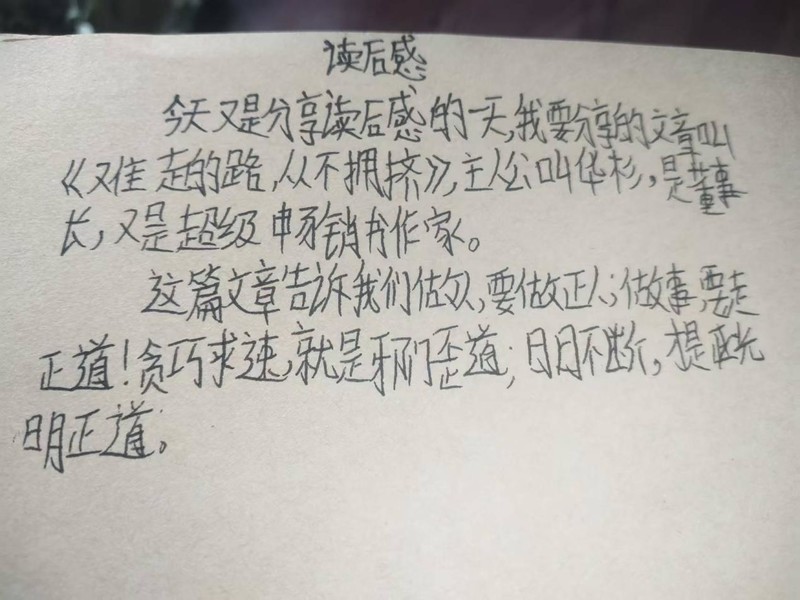 读后感
今天又是分享读后感的一天,我要分享的文章叫
《难走的路,从不拥挤》,主人公叫华杉,是董事
长,又是超级畅销书作家。
这篇文章告诉我们做人,要做正人;做事,要走
正道!贪巧求速,就是邪门歪道;日日不断,才是光
明正道。